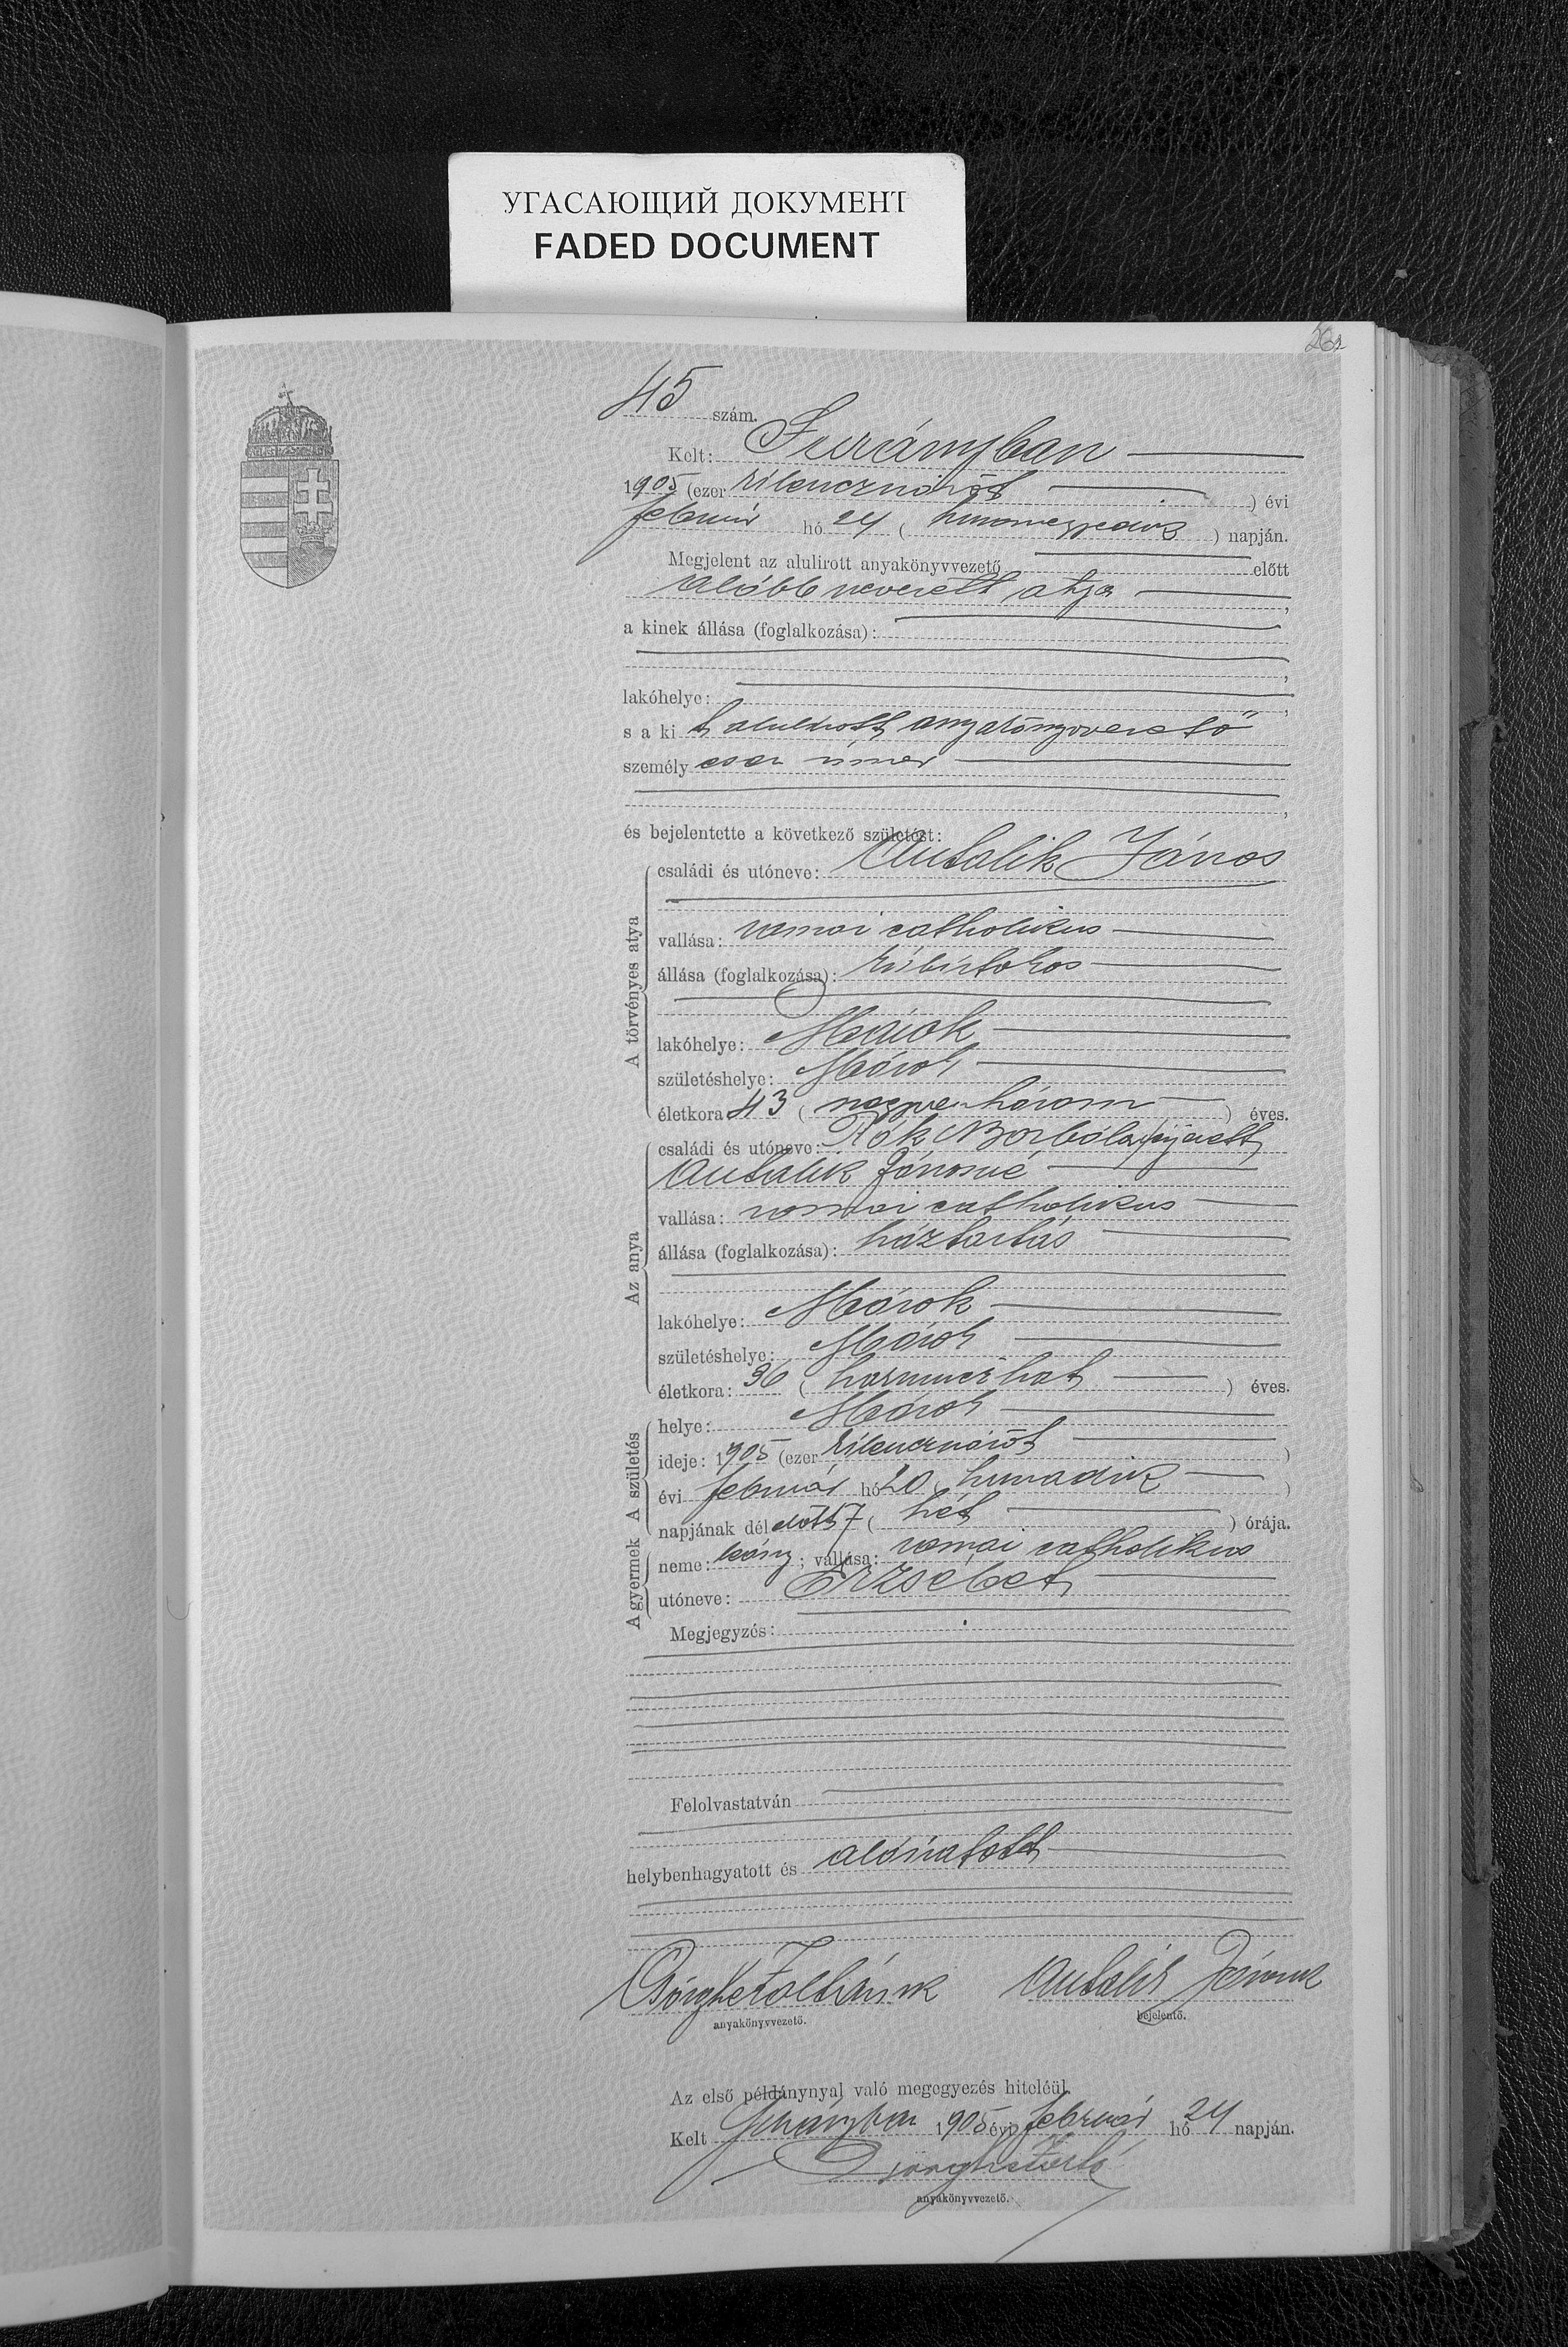 УГАСАЮЩИЙ ДОКУМЕНТ
FADED DOCUMENT
45 szám.
Kelt: Turányban
1905 (ezer kilenczszázöt) évi
február hó 24 (huszonnegyedik) napján.
Megjelent az alulirott anyakönyvvezető előtt
alább nevezett atya,
a kinek állása (foglalkozása):
lakóhelye:
s a kit alulirott anyakönyvvezető
személyesen ismer
és bejelentette a következő születést:
A törvényes atya
családi és utóneve: Antalik János
vallása: romai catholikus
állása (foglalkozása): kisbirtokos
lakóhelye: Márok
születéshelye: Márok
életkora 43 (negyvenhárom) éves.
Az anya
családi és utóneve: Rók Borbála férjezett
Antalik Jánosné
vallása: romai catholikus
állása (foglalkozása): háztartás
lakóhelye: Márok
születéshelye: Márok
életkora: 36 (harminczhat) éves.
A születés
helye: Márok
ideje: 1905 (ezer kilenczszázöt)
évi február hó 20 (huszadik)
napjának dél előtt 7 (hét) órája.
A gyermek
neme: leány; vallása: romai catholikus
utóneve: Erzsébet
Megjegyzés:
Felolvastatván
helybenhagyatott és aláiratott
Antalik János
anyakönyvvezető.
bejelentő.
Az első példánynyal való megegyezés hiteléül.
Kelt 1905 évi február hó 24 napján.
anyakönyvvezető.